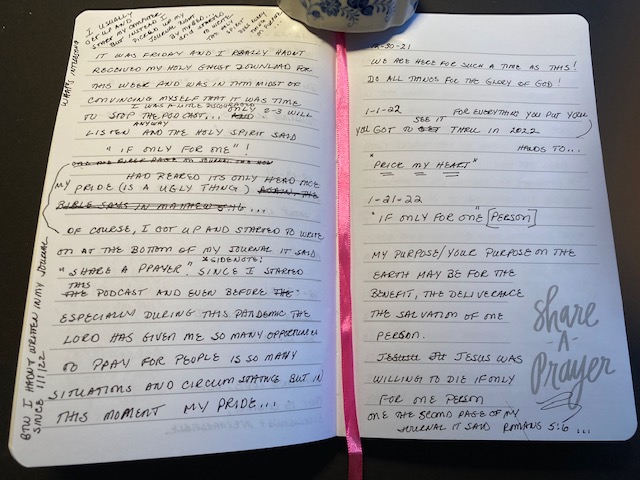 I USUALLY
GET UP AND
START MY COMPUTER
BUT INSTEAD I
PICKED UP MY
JOURNAL
AND STARTED
TO WRITE
WHAT'S INTERESTING
IT WAS FRIDAY AND I REALLY HADN'T
RECEIVED MY HOLY GHOST DOWNLOAD FOR
THIS WEEK AND WAS IN THM MIDST OF
CONVINCING MYSELF THAT IT WAS TIME
I WAS A LITTLE DISCOURAGED
TO STOP THE PODCAST... AND ONLY 2-3 WILL
ANYWAY
LISTEN AND THE HOLY SPIRIT SAID
"IF ONLY FOR ONE"!
HAD REARED ITS ONLY HEAD
MY PRIDE (IS A UGLY THING) AGAIN, THE
BIBLE SAYS IN MATTHEW 5:16 ...
OF COURSE, I GOT UP AND STARTED TO WRITE
ON AT THE BOTTOM OF MY JOURNAL IT SAID
* SIDENOTE:
"SHARE A PRAYER". SINCE I STARTED
THIS
THE PODCAST AND EVEN BEFORE THE
ESPECIALLY DURING THIS PANDEMIC THE
LORD HAS GIVEN ME SO MANY OPPORTUNIES
TO PRAY FOR PEOPLE IS SO MANY
SITUATIONS AND CIRCUMSTANCE BUT IN
THIS MOMENT MY PRIDE...
BTW I HADN'T WRITTEN IN MY JOURNAL
SINCE 1/1/22
-30-21
WE ARE HERE FOR SUCH A TIME AS THIS!
DO ALL THINGS FOR THE GLORY OF GOD!
1-1-22 FOR EVERYTHING YOU PUT YOUR
SEE IT
YOU GOT TO GET THRU IN 2022
HANDS TO...
"PRICK MY HEART"
1-21-22
"IF ONLY FOR ONE" [PERSON]
MY PURPOSE/YOUR PURPOSE ON THE
EARTH MAY BE FOR THE
BENEFIT, THE DELIVERANCE
THE SALVATION OF ONE
PERSON.
JESUS WAS
WILLING TO DIE IF ONLY
FOR ONE PERSON
ONE THE SECOND PAGE OF MY
JOURNAL IT SAID ROMANS 5:6 ...
Share
-A-
Prayer